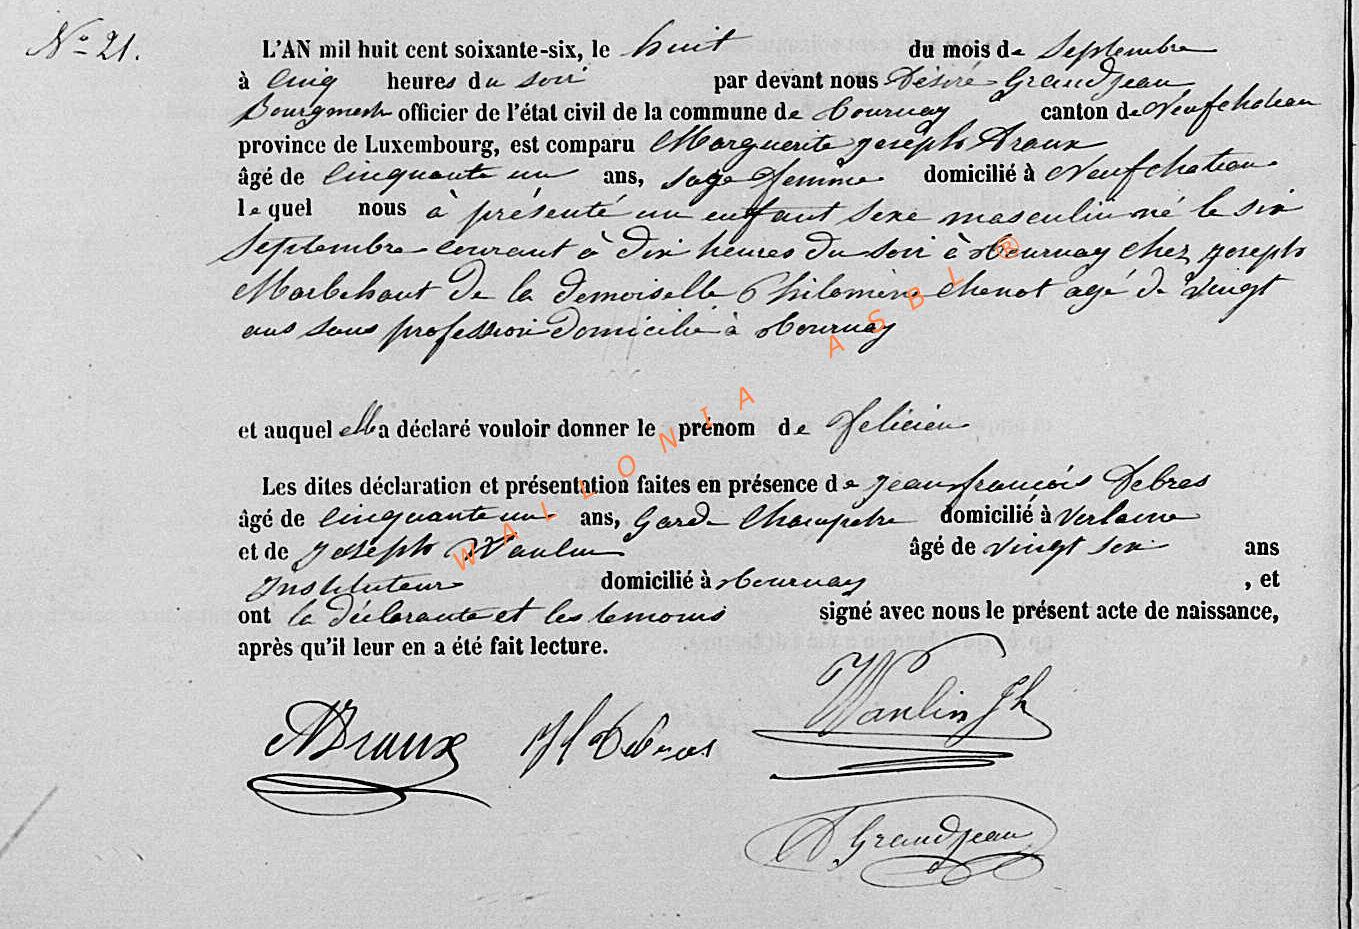 N° 21.
L'AN mil huit cent soixante-six, le huit du mois de Septembre
à cinq heures du soir par devant nous Désiré Grandjean
Bourgmestre officier de l'état civil de la commune de Tournay canton de Neufchateau
province de Luxembourg, est comparu Marguerite Joseph Draux
âgé de cinquante un ans, sage femme domicilié à Neufchateau
lequel nous à présenté un enfant sexe masculin né le six
Septembre courant à dix heures du soir à Tournay chez Joseph
Marbehant de la demoiselle Philomène Chenot agé de vingt
ans sans profession domicilié à Tournay
et auquel elle a déclaré vouloir donner le prénom de Félicien
Les dites déclaration et présentation faites en présence de Jean françois Debras
âgé de cinquante un ans, Garde Champetre domicilié à Verlaine
et de Joseph Wanlin âgé de vingt six ans
Instituteur domicilié à Tournay , et
ont la déclarante et les temoins signé avec nous le présent acte de naissance,
après qu'il leur en a été fait lecture.
MDraux JF Debras Wanlin Jh
D Grandjean
WALLONIA ASBL ®